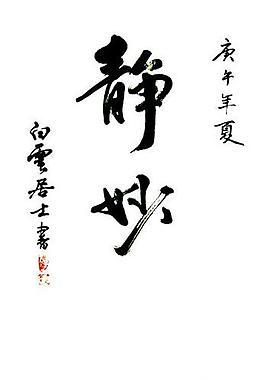 庚午年夏
靜妙
白雲居士書